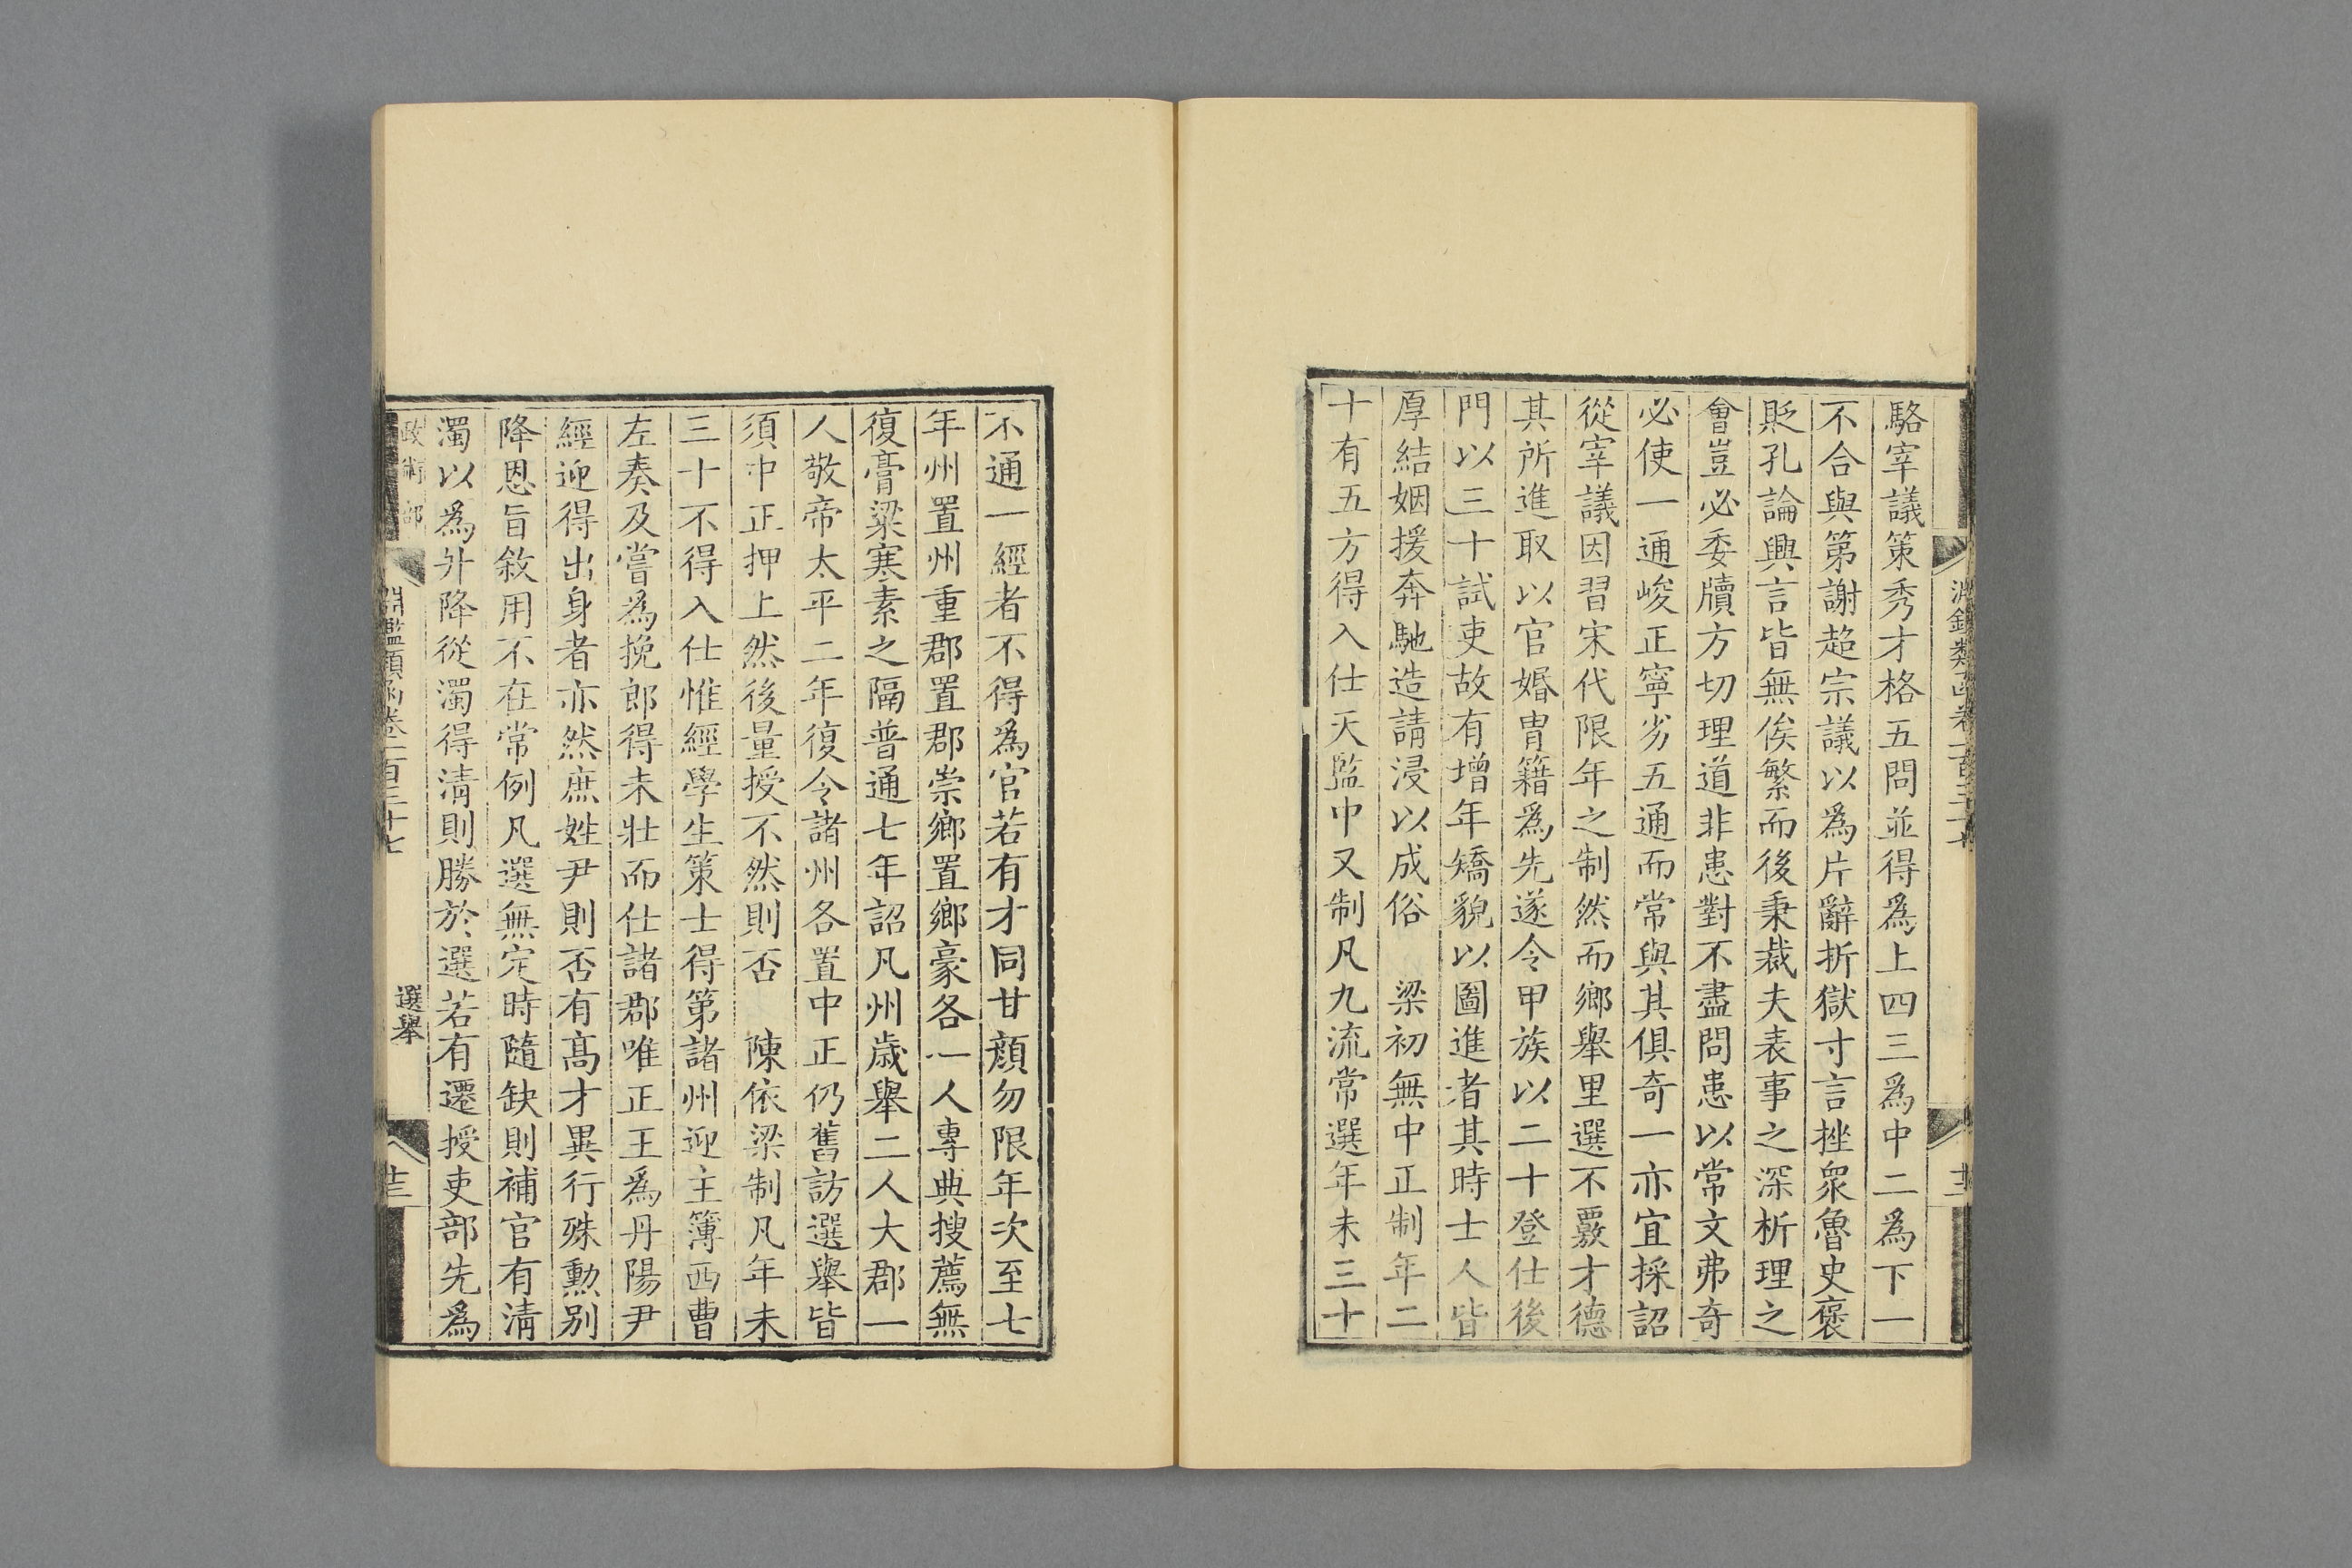 駱宰議策秀才格五問並得爲上四三爲中二爲下一
不合與第謝超宗議以爲片辭折獄寸言挫衆魯史褒
貶孔論興言皆無俟繁而後秉裁夫表事之深析理之
會豈必委牘方切理道非患對不盡問患以常文弗奇
必使一通峻正寧劣五通而常與其俱奇一亦宜採詔
從宰議因習宋代限年之制然而鄉舉里選不覈才德
其所進取以官婚胄籍爲先遂令甲族以二十登仕後
門以三十試吏故有增年矯貌以圖進者其時士人皆
厚結姻援奔馳造請浸以成俗　梁初無中正制年二
十有五方得入仕天監中又制凡九流常選年未三十
不通一經者不得爲官若有才同甘顏勿限年次至七
年州置州重郡置郡崇鄉置鄉豪各一人專典搜薦無
復膏粱寒素之隔普通七年詔凡州歲舉二人大郡一
人敬帝太平二年復令諸州各置中正仍舊訪選舉皆
須中正押上然後量授不然則否　陳依梁制凡年未
三十不得入仕惟經學生策士得第諸州迎主簿西曹
左奏及嘗爲挽郎得未壯而仕諸郡唯正王爲丹陽尹
經迎得出身者亦然庶姓尹則否有高才異行殊勳别
降恩旨敘用不在常例凡選無定時隨缺則補官有清
濁以爲升降從濁得清則勝於選若有遷授吏部先爲
政術部
淵鑑類函卷一百三十七
選舉